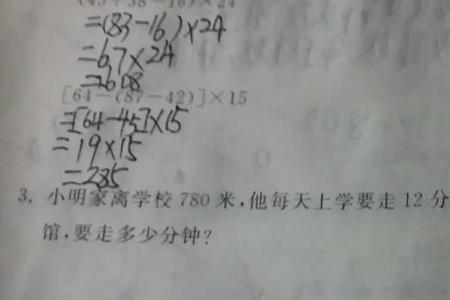 (45+38-16)×24
=(83-16)×24
=67×24
=1608
[64-(87-42)]×15
=[64-45]×15
=19×15
=285
3. 小明家离学校 780 米,他每天上学要走 12 分
馆,要走多少分钟?